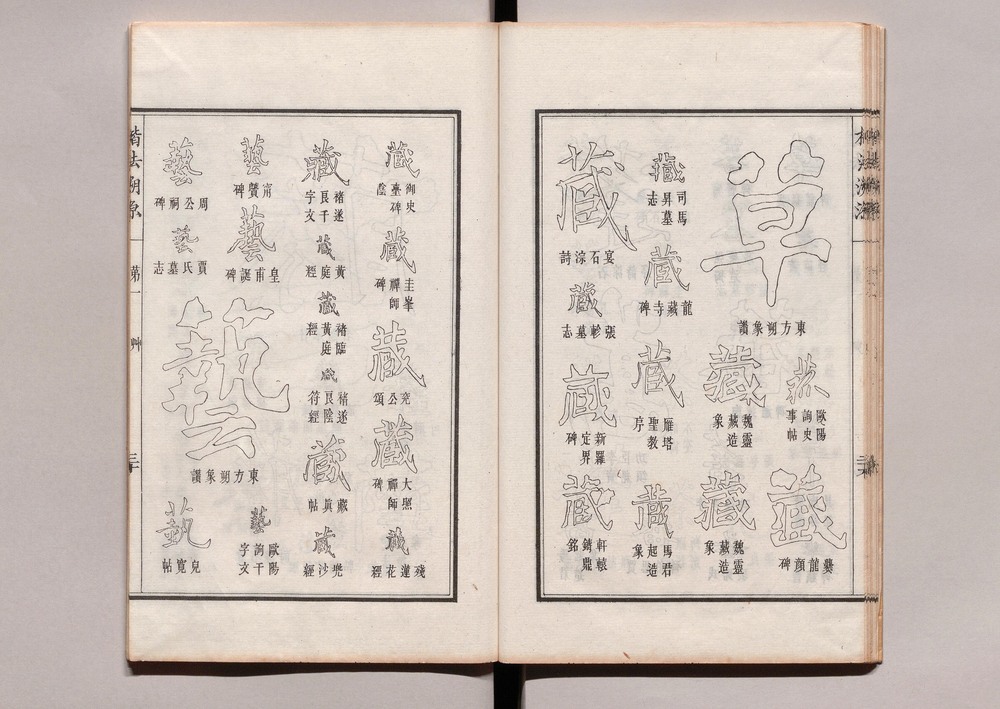 草
東方朔象讚
歐陽詢史事帖
藏
爨龍顏碑
藏
魏靈藏造象
藏
魏靈藏造象
藏
司馬昇墓志
藏
龍藏寺碑
藏
雁塔聖教序
藏
馬君起造象
藏
宴石淙詩
藏
張軫墓志
藏
新羅定界碑
藏
軒轅鑄鼎銘
藏
御史臺碑陰
藏
圭峯禪師碑
藏
兗公頌
藏
大照禪師碑
藏
殘蓮花經
藏
褚遂良千字文
藏
黃庭經
藏
褚臨黃庭經
藏
褚遂良陰符經
藏
藏眞帖
藏
兜沙經
藝
甯贙碑
藝
皇甫誕碑
藝
東方朔象讚
藝
歐陽詢千字文
藝
周公祠碑
藝
賈氏墓志
蓺
兒寬帖
楷法溯源 第一 艸